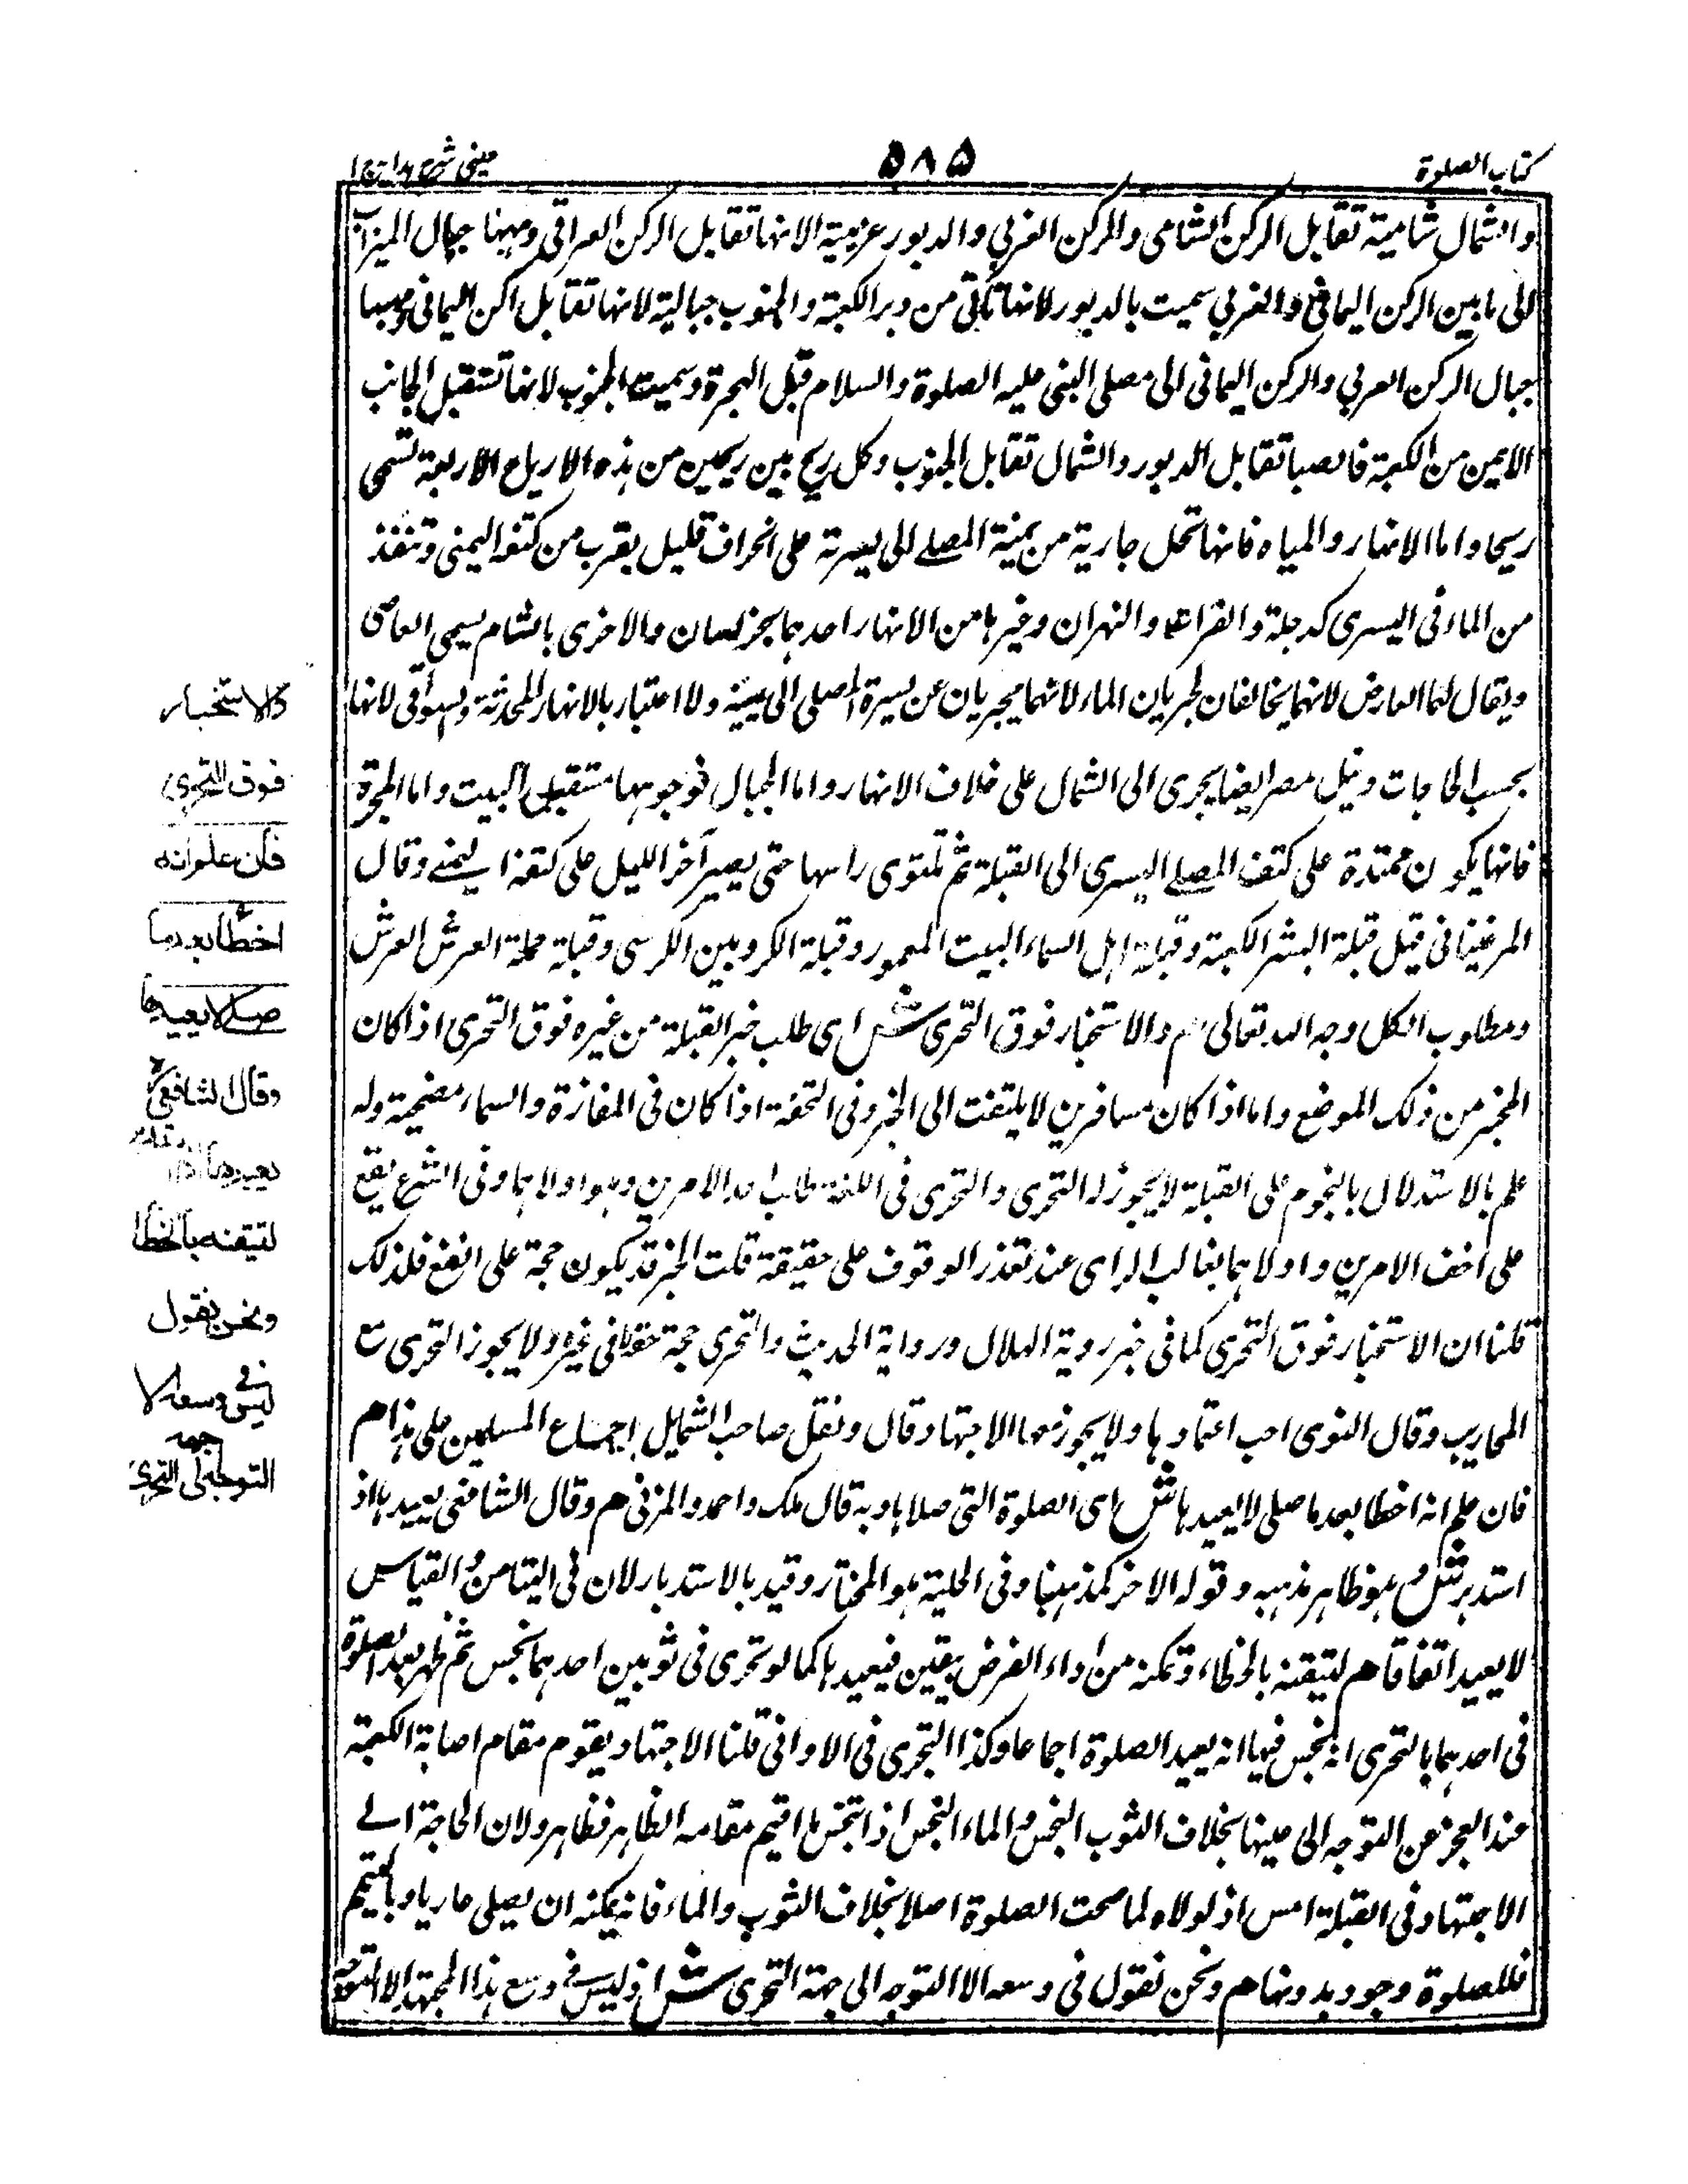 كتاب الصلوة
٥٨٥
عينى شرح هداية ج ١
والشمال شامية تقابل الركن الشامى والركن الغربي والدبور غربية لانها تقابل الركن العراقى ومهبها حيال الميزاب
الى ما بين الركن اليمانى والغربي سميت بالدبور لانها تأتى من دبر الكعبة والجنوب جبالية لانها تقابل الركن اليمانى ومهبها
حيال الركن الغربي والركن اليمانى الى مصلى النبى عليه الصلوة والسلام قبل الهجرة وسميت الجنوب لانها تستقبل الجانب
الايمن من الكعبة فالصبا تقابل الدبور والشمال تقابل الجنوب وكل ريح بين ريحين من هذه الارياح الاربعة تسمى
ريحا واما الانهار والمياه فانها تحل جارية من يمنة المصلے الى يسرته على انحراف قليل بقرب من كتفه اليمنى وتنفذ
من الماء فى اليسرى كدجلة والفرات والنهران وغيرها من الانهار احدهما بخراسان والاخرى بالشام يسمى العاصى
ويقال لهما العارض لانهما يخالفان لجريان الماء لانهما يجريان عن يسرة المصلى الى يمينه ولا اعتبار بالانهار المحدثة والسواقى لانها
بحسب الحاجات ونيل مصر ايضا يجرى الى الشمال على خلاف الانهار واما الجبال فوجوهها مستقبل البيت واما المجرة
فانها يكون ممتدة على كتف المصلے اليسرى الى القبلة ثم تلتوى راسها حتى يصير آخر الليل على كتفه اليمنے وقال
المرغينانى قيل قبلة البشر الكعبة وقبلة اهل السماء البيت المعمور وقبلة الكروبين الكرسى وقبلة حملة العرش العرش
ومطلوب الكل وجه الله تعالى م والاستخبار فوق التحرى ش اى طلب خبر القبلة من غيره فوق التحرى اذا كان
المخبر من ذلك الموضع واما اذا كان مسافرين لا يلتفت الى الخبر وفى التحفة اذا كان فى المفازة والسماء مضحية وله
علم بالاستدلال بالنجوم على القبلة لا يجوز له التحرى والتحرى فى اللغة طلب احد الامرين وهو اولاهما وفى الشرع يقع
على اخف الامرين واولاهما بغالب الراى عند تعذر الوقوف على حقيقة قلت الخبر قد يكون حجة على فلذلك
قلنا ان الاستخبار فوق التحرى كما فى خبر روية الهلال ورواية الحديث والتحرى حجة حقه لا فى غيره ولا يجوز التحرى مع
المحاريب وقال النووى احب اعتمادها ولا يجوز معها الاجتهاد قال ونقل صاحب الشمايل اجماع المسلمين على هذا م
فان علم انه اخطا بعد ما صلى لا يعيدها ش اى الصلوة التى صلاها وبه قال ملك واحمد والمزنى م وقال الشافعى يعيدها اذا
استدبر ش هو ظاهر مذهبه وقوله الاخر كمذهبنا وفى الحلية هو المختار وقيد بالاستدبار لان فى التيامن والقياس
لا يعيد اتفاقا م لتيقنه بالخطاء وتمكنه من اداء الفرض بيقين فيعيدها كما لو تحرى فى ثوبين احدهما نجس ثم ظهر بعد الصلوة
فى احدهما بالتحرى انه نجس فيها انه يعيد الصلوة اجماعا وكذا التحرى فى الاوانى قلنا الاجتهاد يقوم مقام اصابة الكعبة
عند العجز عن التوجه الى عينها بخلاف الثوب النجس والماء النجس اذ النجس ما اقيم مقامه الطاهر فظاهر ولان الحاجة الے
الاجتهاد فى القبلة امس اذ لولاه لما صحت الصلوة اصلا بخلاف الثوب والماء فانه يمكنه ان يصلى عاريا وبالتيمم
فللصلوة وجود بدونها م ونحن نقول فى وسعه الا التوجه الى جهة التحرى ش اذ ليس فے وسع هذا المجتهد الا التوجه
كالاستخبار
فوق التحرى
فان علم انه
اخطأ بعد ما
صلے لا يعيدها
وقال الشافعىؒ
يعيدها اذا
لتيقنه بالخطأ
ونحن نقول
ليس فے وسعه الا
التوجه الى جهة التحرى